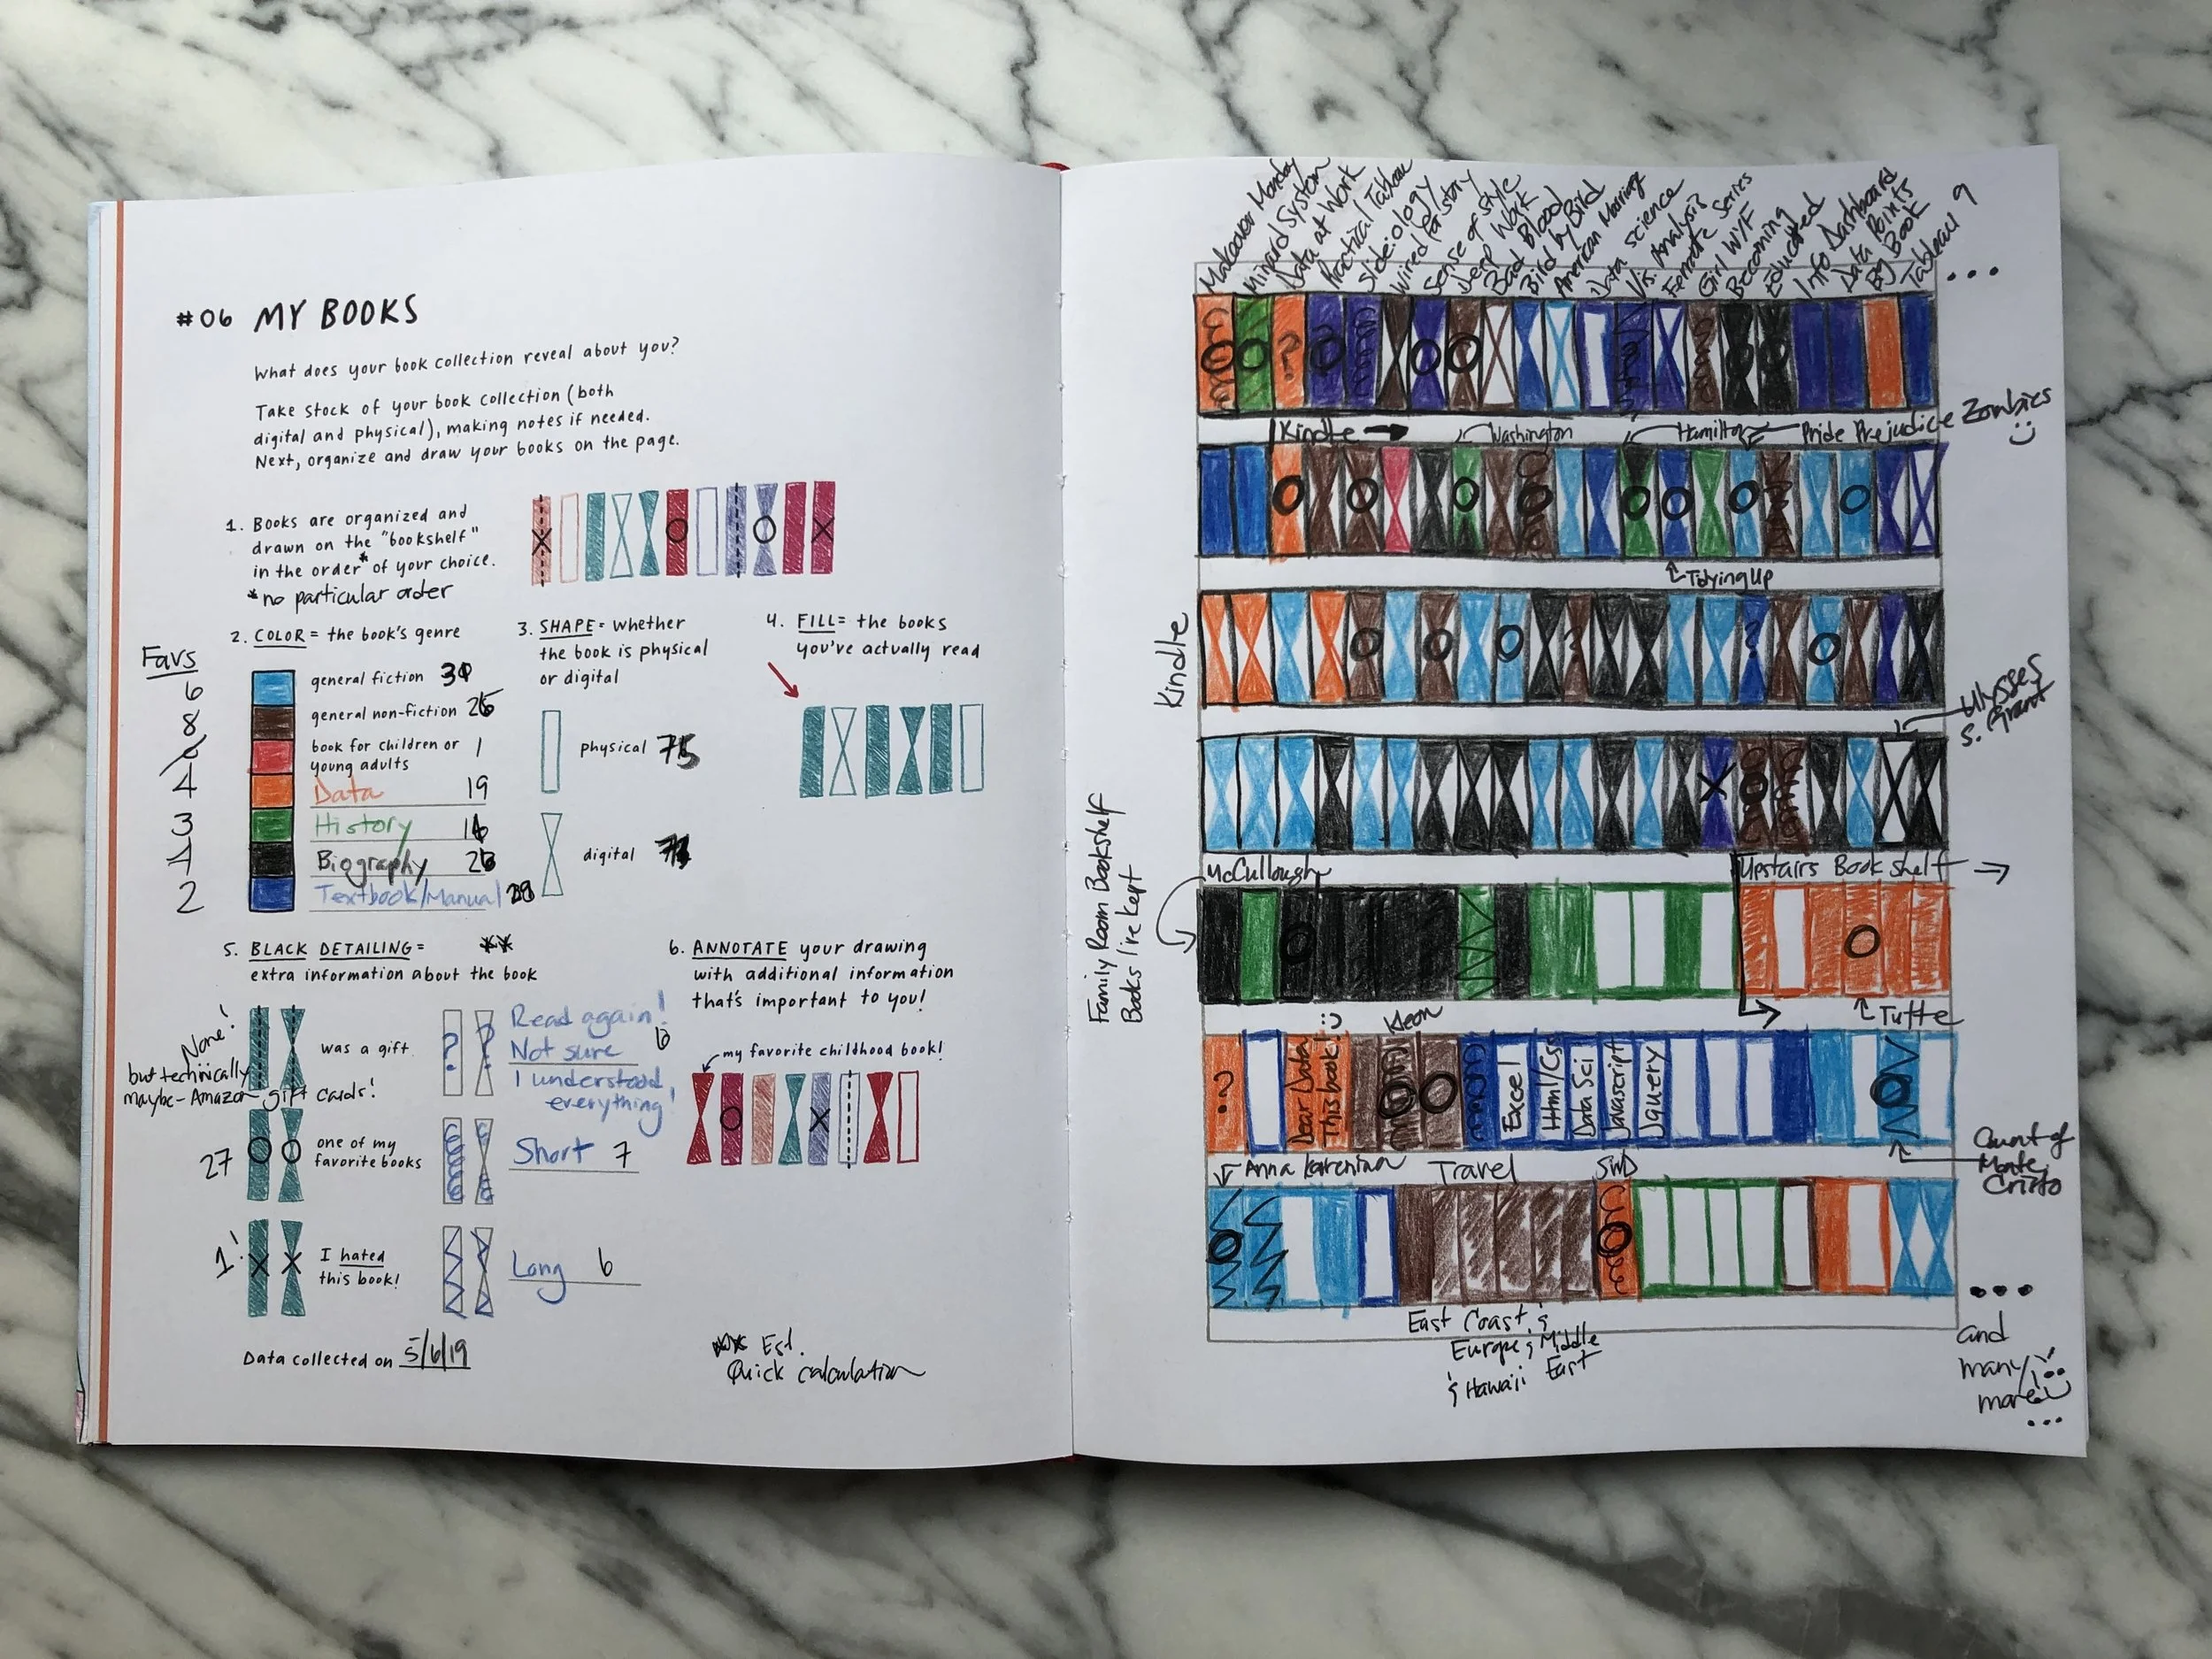 #06 MY BOOKS
What does your book collection reveal about you?
Take stock of your book collection (both
digital and physical), making notes if needed.
Next, organize and draw your books on the page.
1. Books are organized and
drawn on the "bookshelf"
in the order* of your choice.
*no particular order
2. COLOR = the book's genre
Favs
6
general fiction
8
general non-fiction
book for children or 1
young adults
4
Data 19
3
History
Biography
2
Textbook/Manual
3. SHAPE = whether
the book is physical
or digital
physical 75
digital
4. FILL = the books
you've actually read
5. BLACK DETAILING = **
extra information about the book
None!
but technically
maybe - Amazon gift cards!
was a gift
27
one of my
favorite books
1!
I hated
this book!
?
?
Read again!
Not sure 6
I understood
everything!
Short 7
Long 6
6. ANNOTATE your drawing
with additional information
that's important to you!
my favorite childhood book!
Data collected on 5/6/19
** Est.
Quick calculation
Makeover Monday
Minard System
Data at Work
Practical Tableau
Slide:ology
Wired for Story
Sense of Style
Deep Work
Bad Blood
Bird by Bird
American Marriage
Data Science
Vis. Analysis
Ferrante Series
Girl W/F
Becoming
Educated
Info Dashboard
Data Points
Big Book
Tableau 9
...
?
Kindle →
Washington
Hamilton
Pride Prejudice Zombies
Tidying Up
Kindle
?
?
Ulysses
S. Grant
Family Room Bookshelf
Books I've kept
McCullough
Upstairs Book shelf →
Tufte
:)
Kleon
?
Dear Data
This book!
Excel
Html/Css
Data Sci
Javascript
Jquery
Count of
Monte
Cristo
Anna Karenina
Travel
SWD
East Coast &
Europe & Middle
East
& Hawaii
...
and
many
more
...